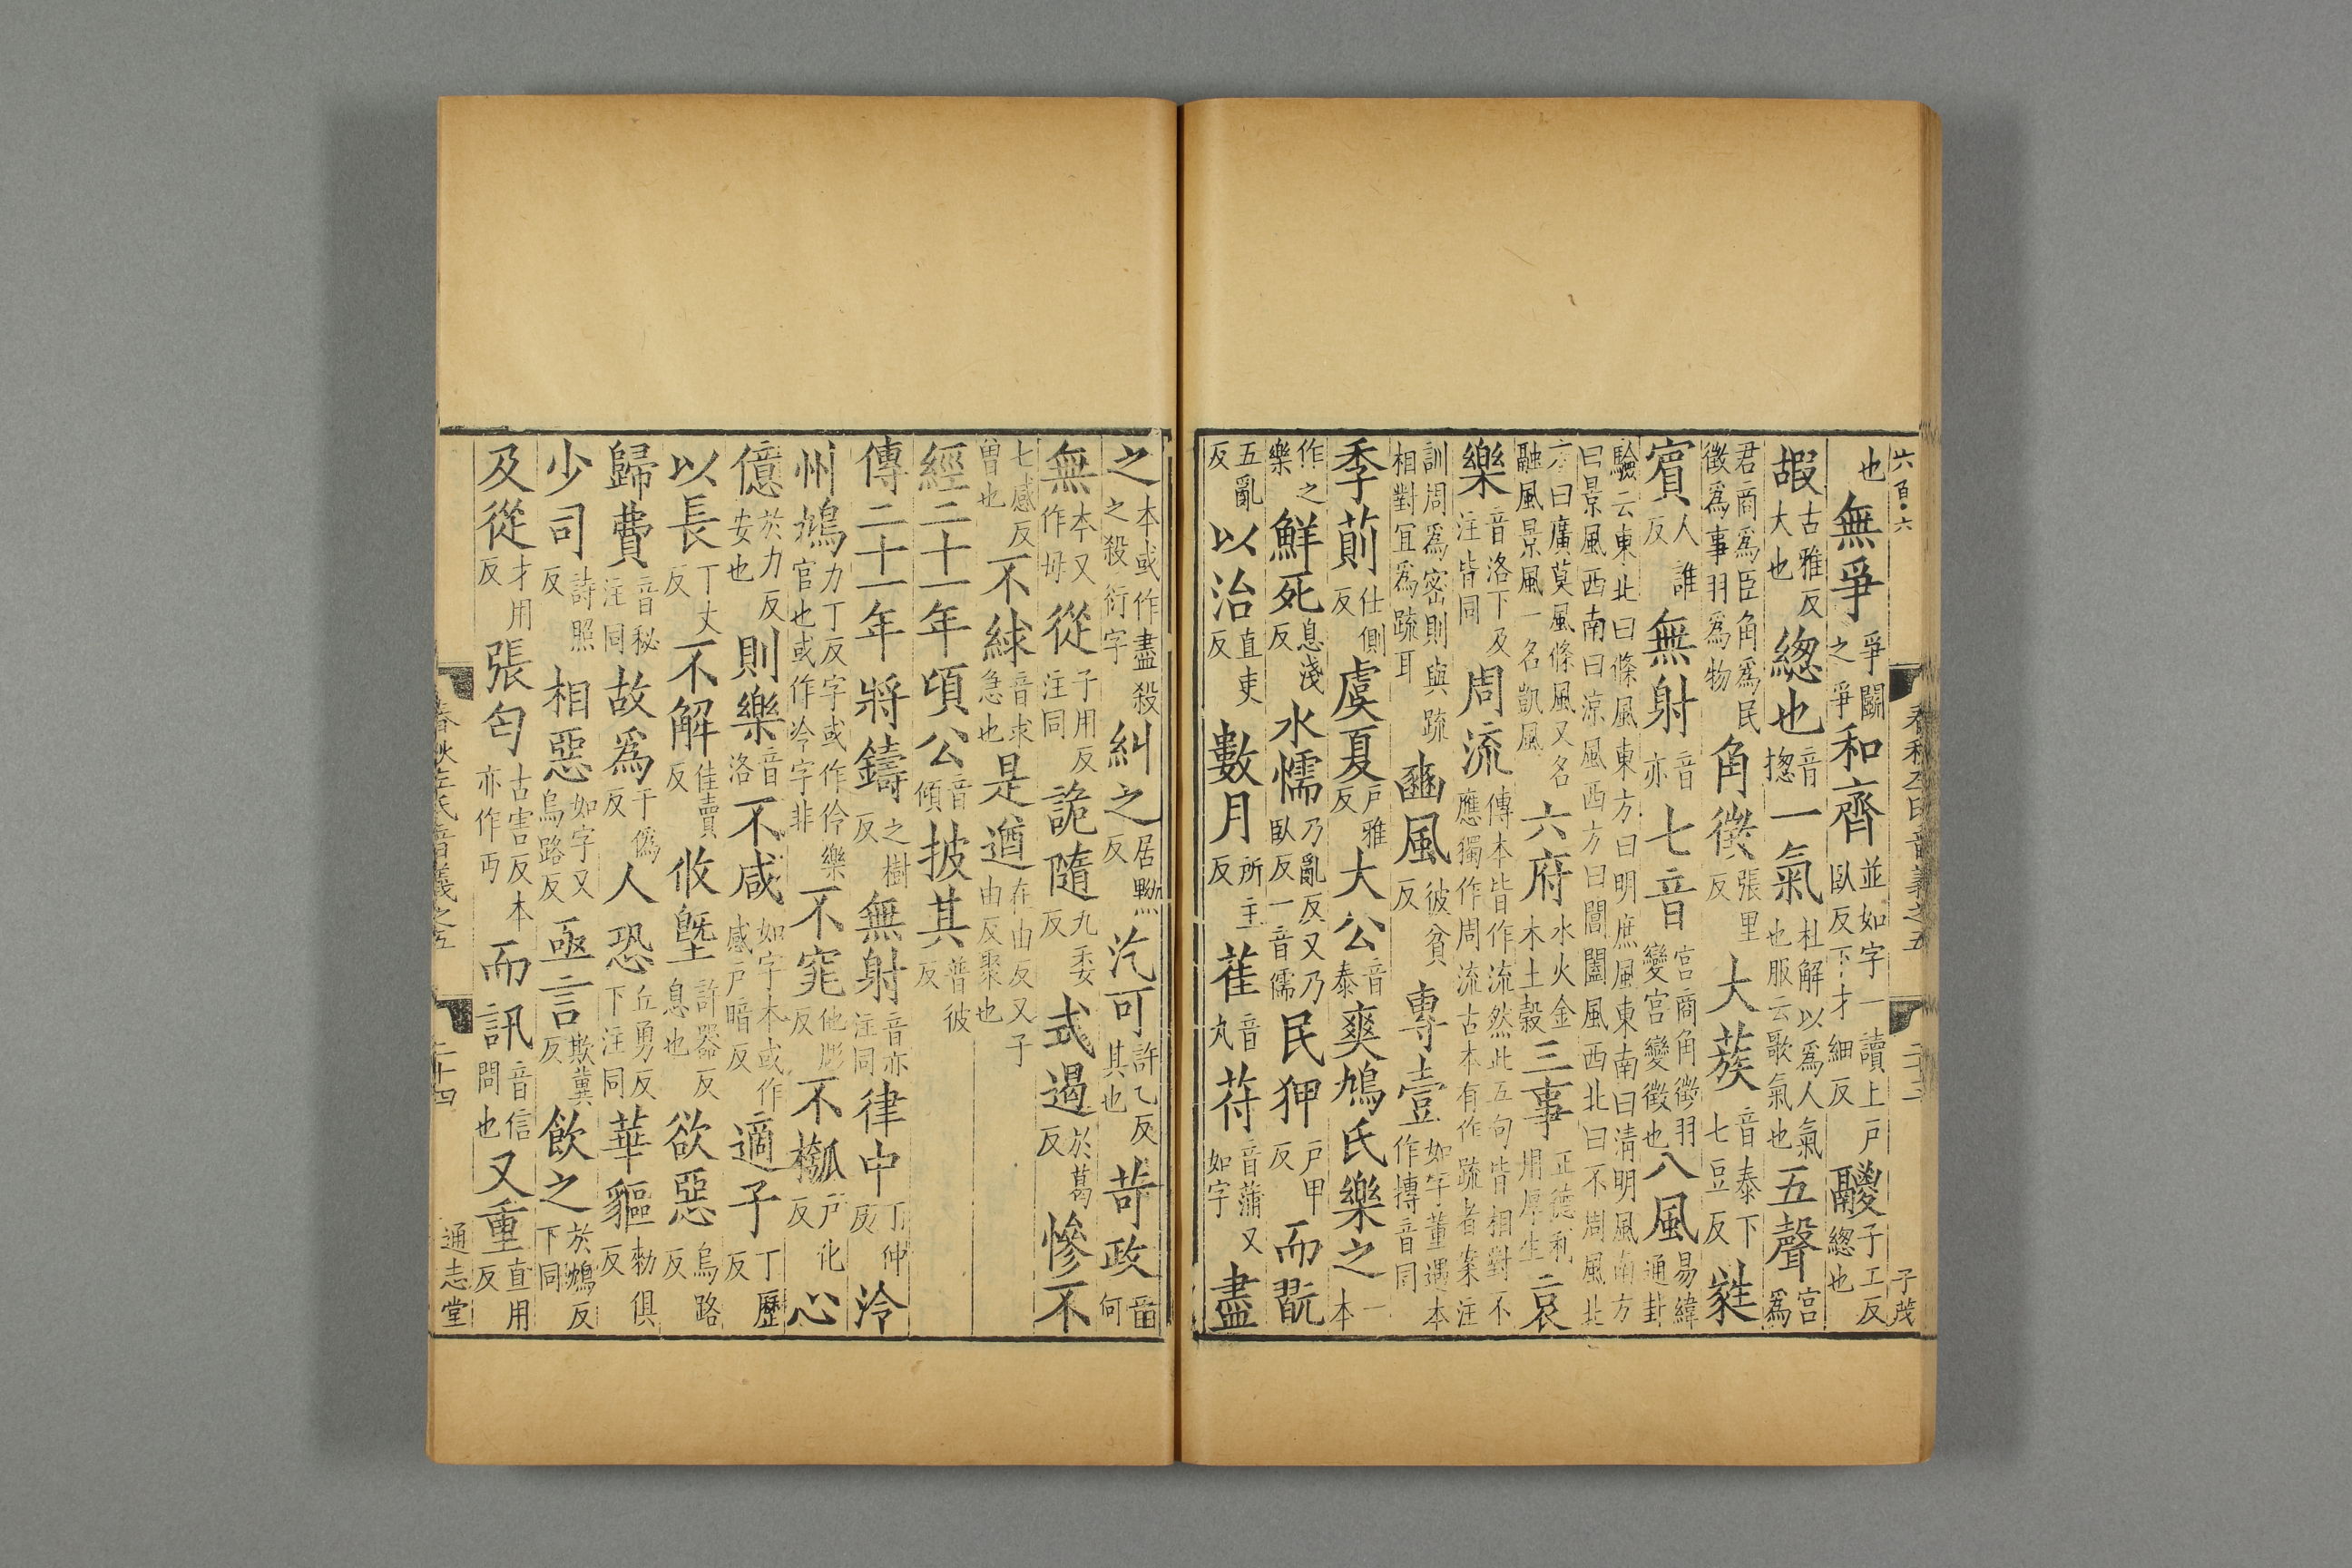 六百六 春秋左氏音義之五 二十三 子茂
也無爭爭鬬之爭和齊並如字一讀上戶臥反下才細反鬷子工反總也
嘏古雅反大也緫也音揔一氣杜解以爲人氣也服云歌氣也五聲宮爲
君商爲臣角爲民徵爲事羽爲物角徵張里反大蔟音泰下七豆反蕤
賓人誰反無射音亦七音宮商角徵羽變宮變徵也八風易緯通卦
驗云東北曰條風東方曰明庶風東南曰清明風南方曰景風西南曰涼風西方曰閶闔風西北曰不周風北
方曰廣莫風條風又名融風景風一名凱風六府水火金木土穀三事正德利用厚生哀
樂音洛下及注皆同周流傳本皆作流然此五句皆相對不應獨作周流古本有作疏者案注
訓周爲密則與疏相對宜爲疏耳豳風彼貧反專壹如字董遇本作摶音同
季萴仕側反虞夏戶雅反大公音泰爽鳩氏樂之一本
作之樂鮮死息淺反水懦乃亂反又乃臥反一音儒民狎戶甲反而翫
五亂反以治直吏反數月所主反萑音丸苻音蒲又如字盡
之本或作盡殺之殺衍字糾之居黝反汔可許乙反其也苛政音何
無本又作毋從子用反注同詭隨九委反式遏於葛反慘不
七感反曽也不絿音求急也是遒在由反又子由反聚也
經二十一年頃公音傾披其普彼反
傳二十一年將鑄之樹反無射音亦注同律中丁仲反泠
州鳩力丁反字或作伶樂官也或作冷字非不窕他彫反不槬戶化反心
億於力反安也則樂音洛不咸如字本或作感戶暗反適子丁歷反
以長丁丈反不解佳賣反攸塈許器反息也欲惡烏路反
歸費音秘注同故爲于僞反人恐丘勇反下注同華貙勑俱反
少司詩照反相惡如字又烏路反亟言欺冀反飲之於鴆反下同
及從才用反張匄古害反本亦作丐而訊音信問也又重直用反
春秋左氏音義之五 二十四 通志堂